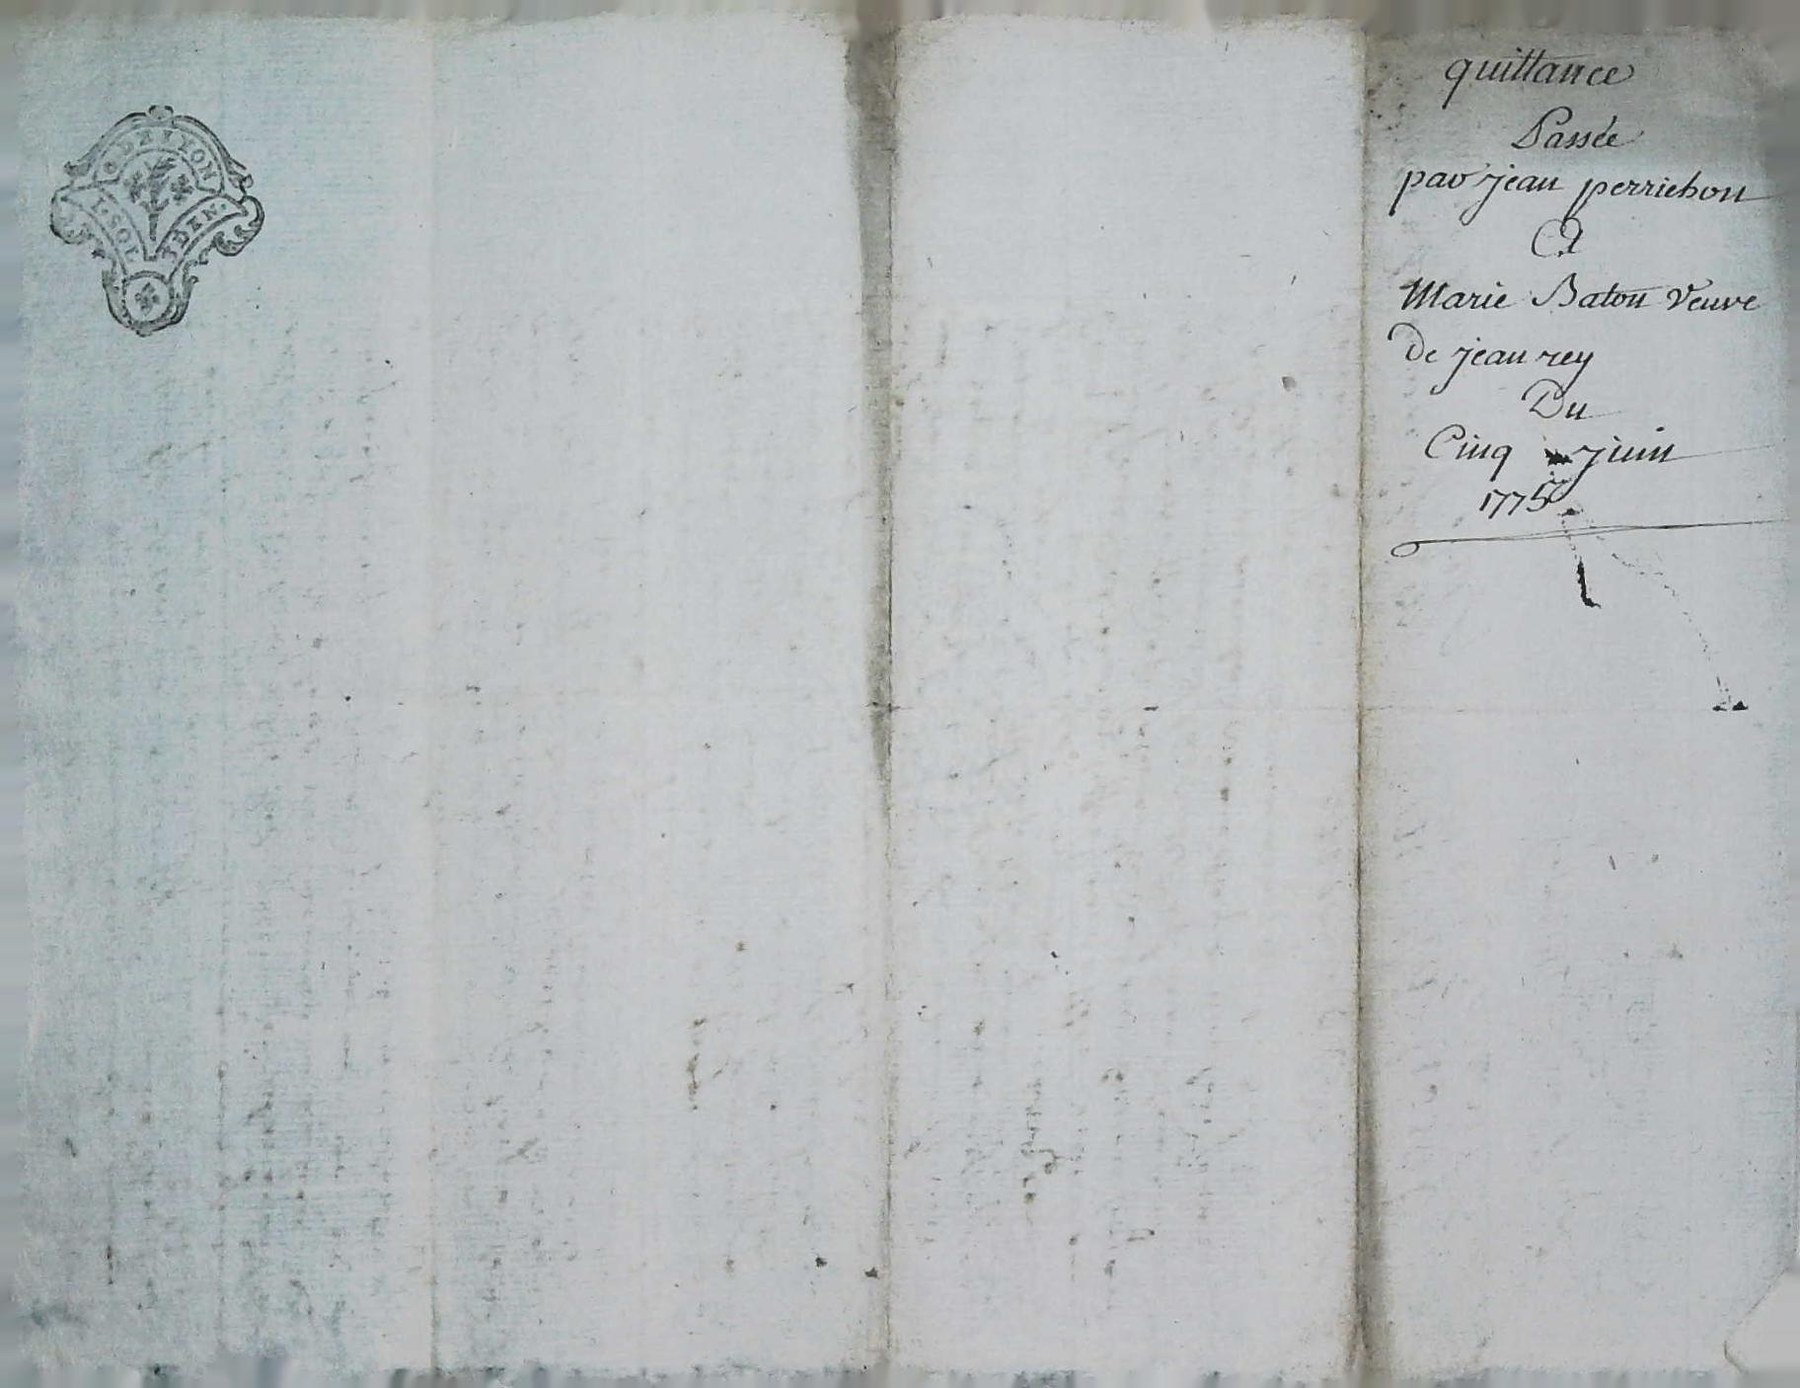 G. DE LYON
1. SOL
TDEN.
quittance
Passée
par jean perrichon
A
Marie Baton Veuve
De jean rey
Du
Cinq juin
1775